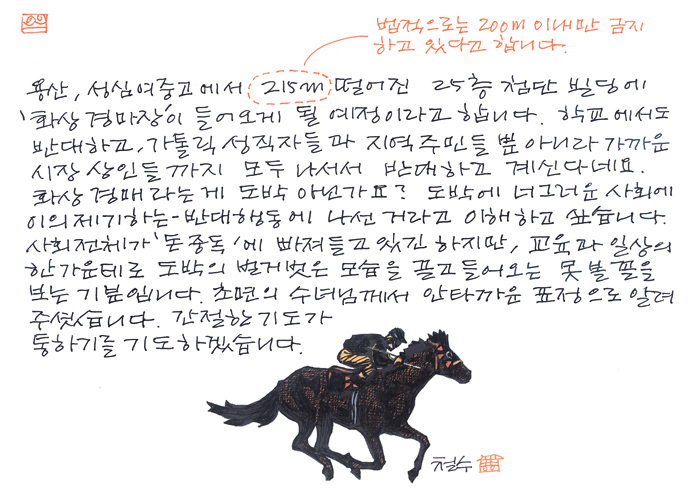 법적으로는 200m 이내만 금지
하고 있다고 합니다.
용산, 성심여중고에서 215m 떨어진 25층 첨단 빌딩에
'화상 경마장'이 들어오게 될 예정이라고 합니다. 학교에서도
반대하고, 가톨릭 성직자들과 지역주민들 뿐 아니라 가까운
시장 상인들까지 모두 나서서 반대하고 계신다네요.
화상 경매라는게 도박 아닌가요? 도박에 너그러운 사회에
이의제기하는-반대행동에 나선 거라고 이해하고 싶습니다.
사회전체가 '돈 중독'에 빠져들고 있긴 하지만, 교육과 일상의
한가운데로 도박의 벌거벗은 모습을 끌고들어오는 못 볼 꼴을
보는 기분입니다. 초면의 수녀님께서 안타까운 표정으로 알려
주셨습니다. 간절한 기도가
통하기를 기도하겠습니다.
철수